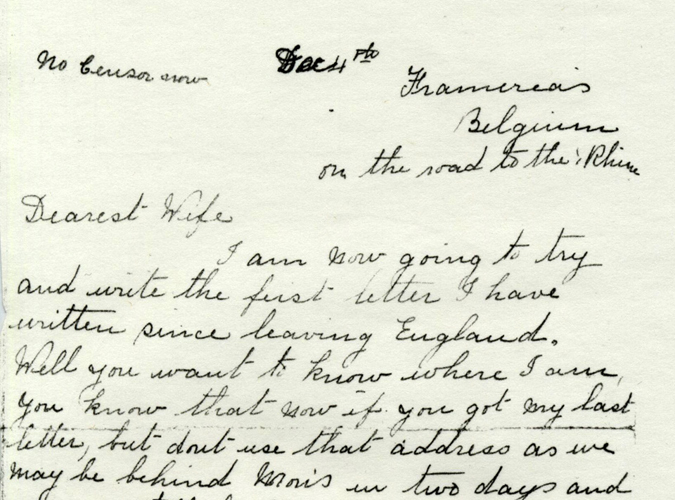 No Censor now
Dec 4th
Framereas
Belgium
on the road to the Rhine
Dearest Wife
I am now going to try
and write the first letter I have
written since leaving England.
Well you want to know where I am,
you know that now if you got my last
letter, but dont use that address as we
may be behind Mons in two days and